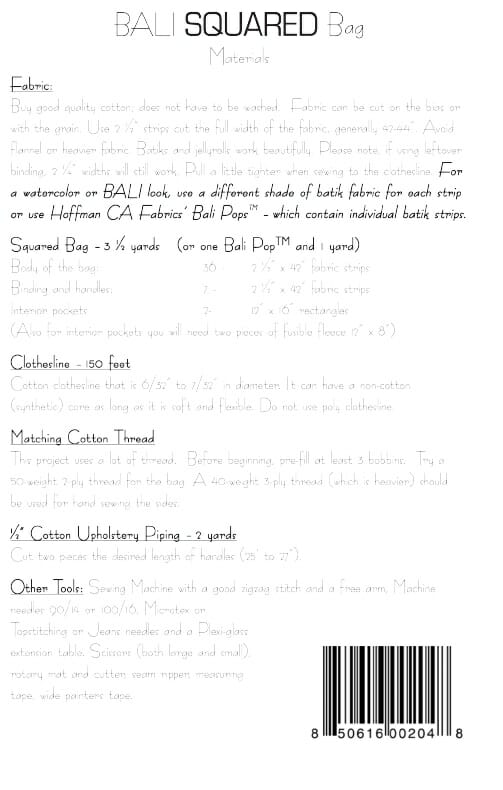 BALI SQUARED Bag
Materials
Fabric:
Buy good quality cotton; does not have to be washed. Fabric can be cut on the bias or
with the grain. Use 2 ½" strips cut the full width of the fabric, generally 42-44". Avoid
flannel or heavier fabric. Batiks and jellyrolls work beautifully. Please note, if using leftover
binding, 2 ¼" widths will still work. Pull a little tighter when sewing to the clothesline. For
a watercolor or BALI look, use a different shade of batik fabric for each strip
or use Hoffman CA Fabrics' Bali Pops™ - which contain individual batik strips.
Squared Bag - 3 ½ yards (or one Bali Pop™ and 1 yard)
Body of the bag: 36 - 2 ½" x 42" fabric strips
Binding and handles: 2 - 2 ½" x 42" fabric strips
Interior pockets 2- 12" x 16" rectangles
(Also for interior pockets you will need two pieces of fusible fleece 12" x 8")
Clothesline - 150 feet
Cotton clothesline that is 6/32" to 7/32" in diameter. It can have a non-cotton
(synthetic) core as long as it is soft and flexible. Do not use poly clothesline.
Matching Cotton Thread
This project uses a lot of thread. Before beginning, pre-fill at least 3 bobbins. Try a
50-weight 2-ply thread for the bag. A 40-weight 3-ply thread (which is heavier) should
be used for hand sewing the sides.
½" Cotton Upholstery Piping - 2 yards
Cut two pieces the desired length of handles (25" to 27").
Other Tools: Sewing Machine with a good zigzag stitch and a free arm, Machine
needles 90/14 or 100/16, Microtex or
Topstitching or Jeans needles and a Plexi-glass
extension table. Scissors (both large and small),
rotary mat and cutter, seam ripper, measuring
tape, wide painters tape.
8 50616 00204 8